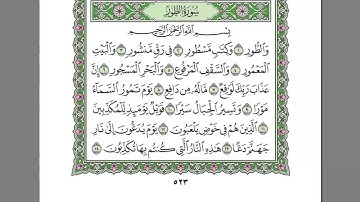 سُورَةُ الطُّورِ
بِسْمِ اللَّهِ الرَّحْمَٰنِ الرَّحِيمِ
وَالطُّورِ ١ وَكِتَابٍ مَسْطُورٍ ٢ فِي رَقٍّ مَنْشُورٍ ٣ وَالْبَيْتِ
الْمَعْمُورِ ٤ وَالسَّقْفِ الْمَرْفُوعِ ٥ وَالْبَحْرِ الْمَسْجُورِ ٦ إِنَّ
عَذَابَ رَبِّكَ لَوَاقِعٌ ٧ مَا لَهُ مِنْ دَافِعٍ ٨ يَوْمَ تَمُورُ السَّمَاءُ
مَوْرًا ٩ وَتَسِيرُ الْجِبَالُ سَيْرًا ١٠ فَوَيْلٌ يَوْمَئِذٍ لِلْمُكَذِّبِينَ
١١ الَّذِينَ هُمْ فِي خَوْضٍ يَلْعَبُونَ ١٢ يَوْمَ يُدَعُّونَ إِلَىٰ نَارِ
جَهَنَّمَ دَعًّا ١٣ هَٰذِهِ النَّارُ الَّتِي كُنْتُمْ بِهَا تُكَذِّبُونَ ١٤
٥٢٣